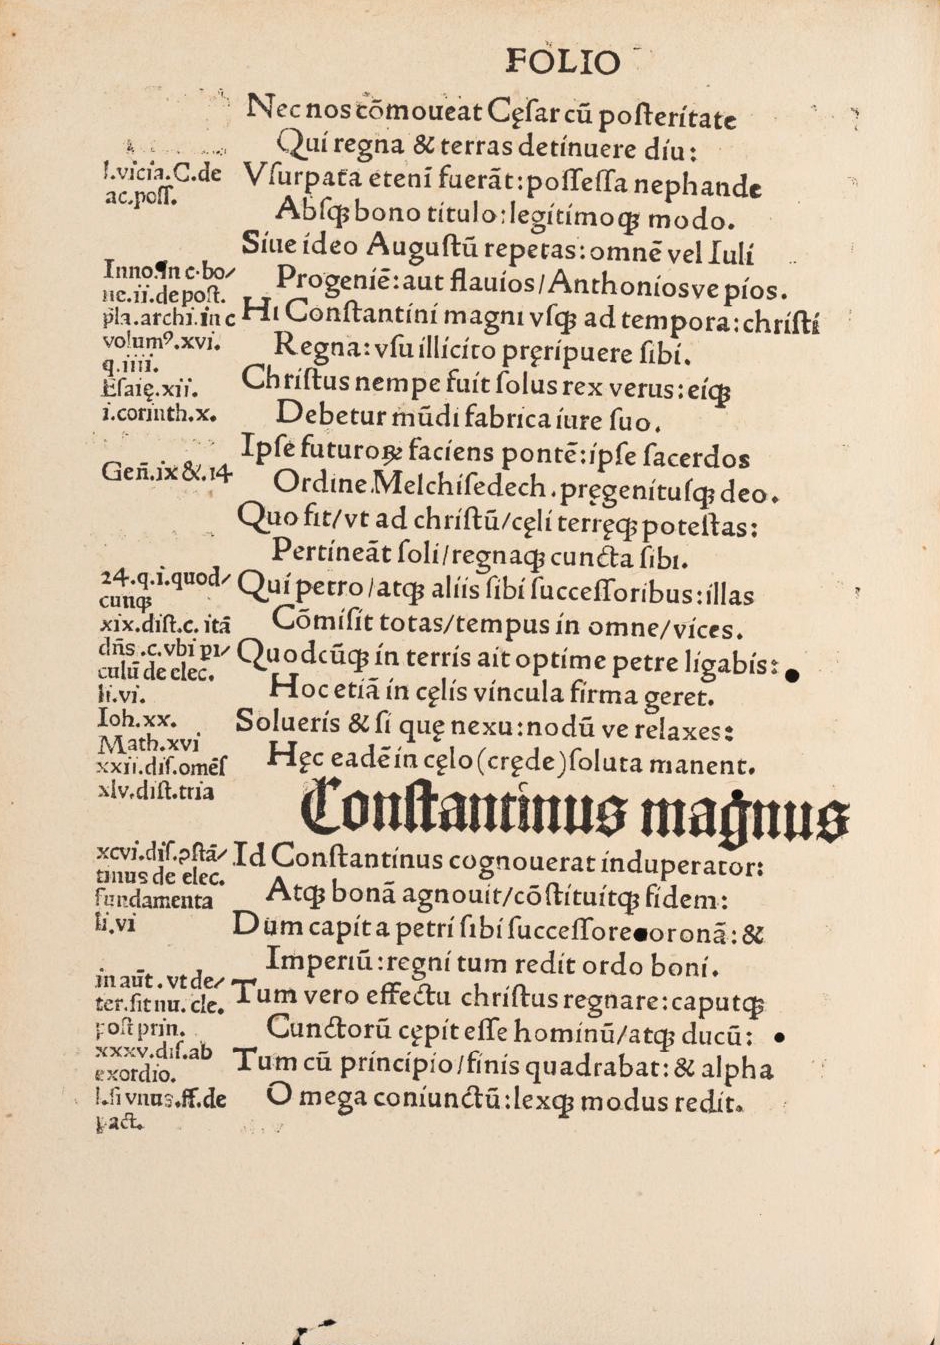 FOLIO
Nec nos cōmoueat Cęſar cū poſteritate
Qui regna & terras detinuere diu:
l.vicia.C.de
ac.poſſ.
Vſurpata etenī fuerāt:poſſeſſa nephande
Abſqꝫ bono titulo:legitimoqꝫ modo.
Siue ideo Auguſtū repetas:omnē vel Iuli
Inno.in c.bo/
ne.ii.de poſt.
Progeniē:aut flauios/Anthonioſve pios.
pla.archi.in c
Hi Conſtantini magni vſqꝫ ad tempora:chriſti
volumꝰ.xvi.
q.iiii.
Regna:vſu illicito pręripuere ſibi.
Eſaię.xii.
Chriſtus nempe fuit ſolus rex verus:eiqꝫ
i.corinth.x.
Debetur mūdi fabrica iure ſuo.
Ipſe futuroꝝ faciens pontē:ipſe ſacerdos
Geñ.ix &.14
Ordine Melchiſedech.pręgenituſqꝫ deo.
Quo fit/vt ad chriſtū/cęli terręqꝫ poteſtas:
Pertineāt ſoli/regnaqꝫ cuncta ſibi.
24.q.i.quod/
cunqꝫ
Qui petro/atqꝫ aliis ſibi ſucceſſoribus:illas
xix.diſt.c. itā
Cōmiſit totas/tempus in omne/vices.
dn̄s .c.vbi pi/
culū de elec.
Quodcūqꝫ in terris ait optime petre ligabis:
li.vi.
Hoc etiā in cęlis vincula firma geret.
Ioh.xx.
Solueris & ſi quę nexu:nodū ve relaxes:
Math.xvi
xxii.diſ.omēſ
Hęc eadē in cęlo(cręde)ſoluta manent.
xlv.diſt.tria
Conſtantinus magnus
xcvi.diſ.ꝯſtā/
tinus de elec.
Id Conſtantinus cognouerat induperator:
fundamenta
Atqꝫ bonā agnouit/cōſtituitqꝫ fidem:
li.vi
Dum capita petri ſibi ſucceſſore oronā:&
Imperiū:regni tum redit ordo boni.
in aūt.vt de/
ter.ſit nu. cle.
Tum vero effectu chriſtus regnare:caputqꝫ
poſt prin.
Cunctorū cępit eſſe hominū/atqꝫ ducū:
xxxv.diſ.ab
exordio.
Tum cū principio/finis quadrabat:& alpha
l.ſi vnus.ff.de
pact.
O mega coniunctū:lexqꝫ modus redit.